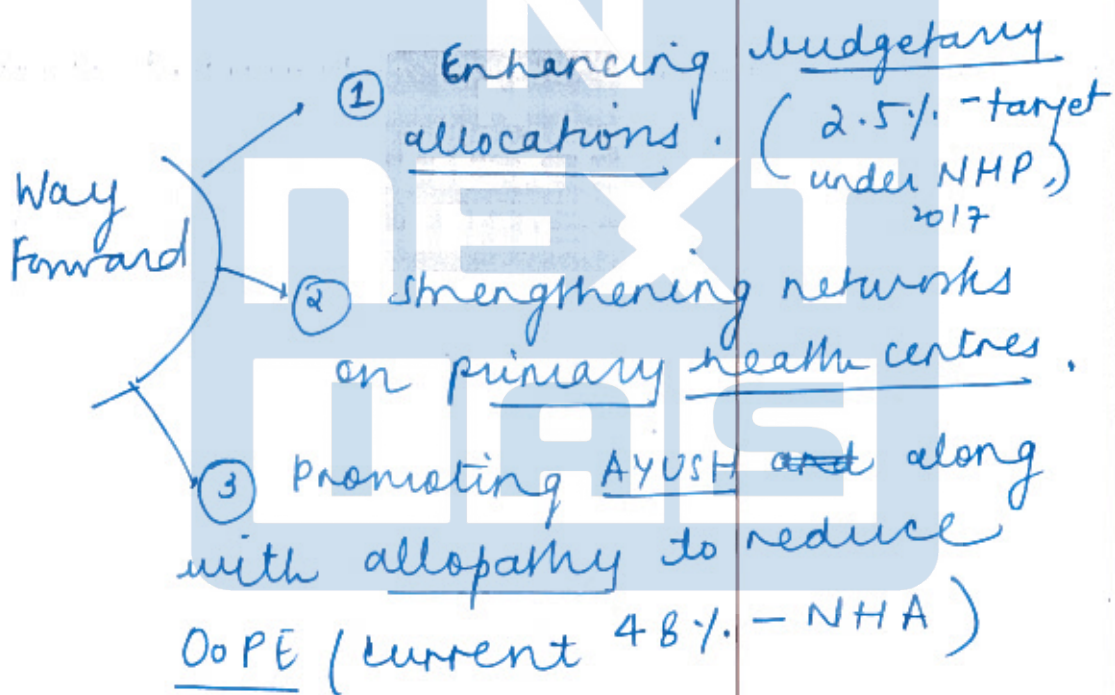 ① Enhancing budgetary
allocations. ( 2.5% - target
under NHP,)
2017
Way
Forward
② Strengthening networks
on primary health centres.
③ Promoting AYUSH and along
with allopathy to reduce
OoPE (current 48% - NHA)
NEXT
IAS